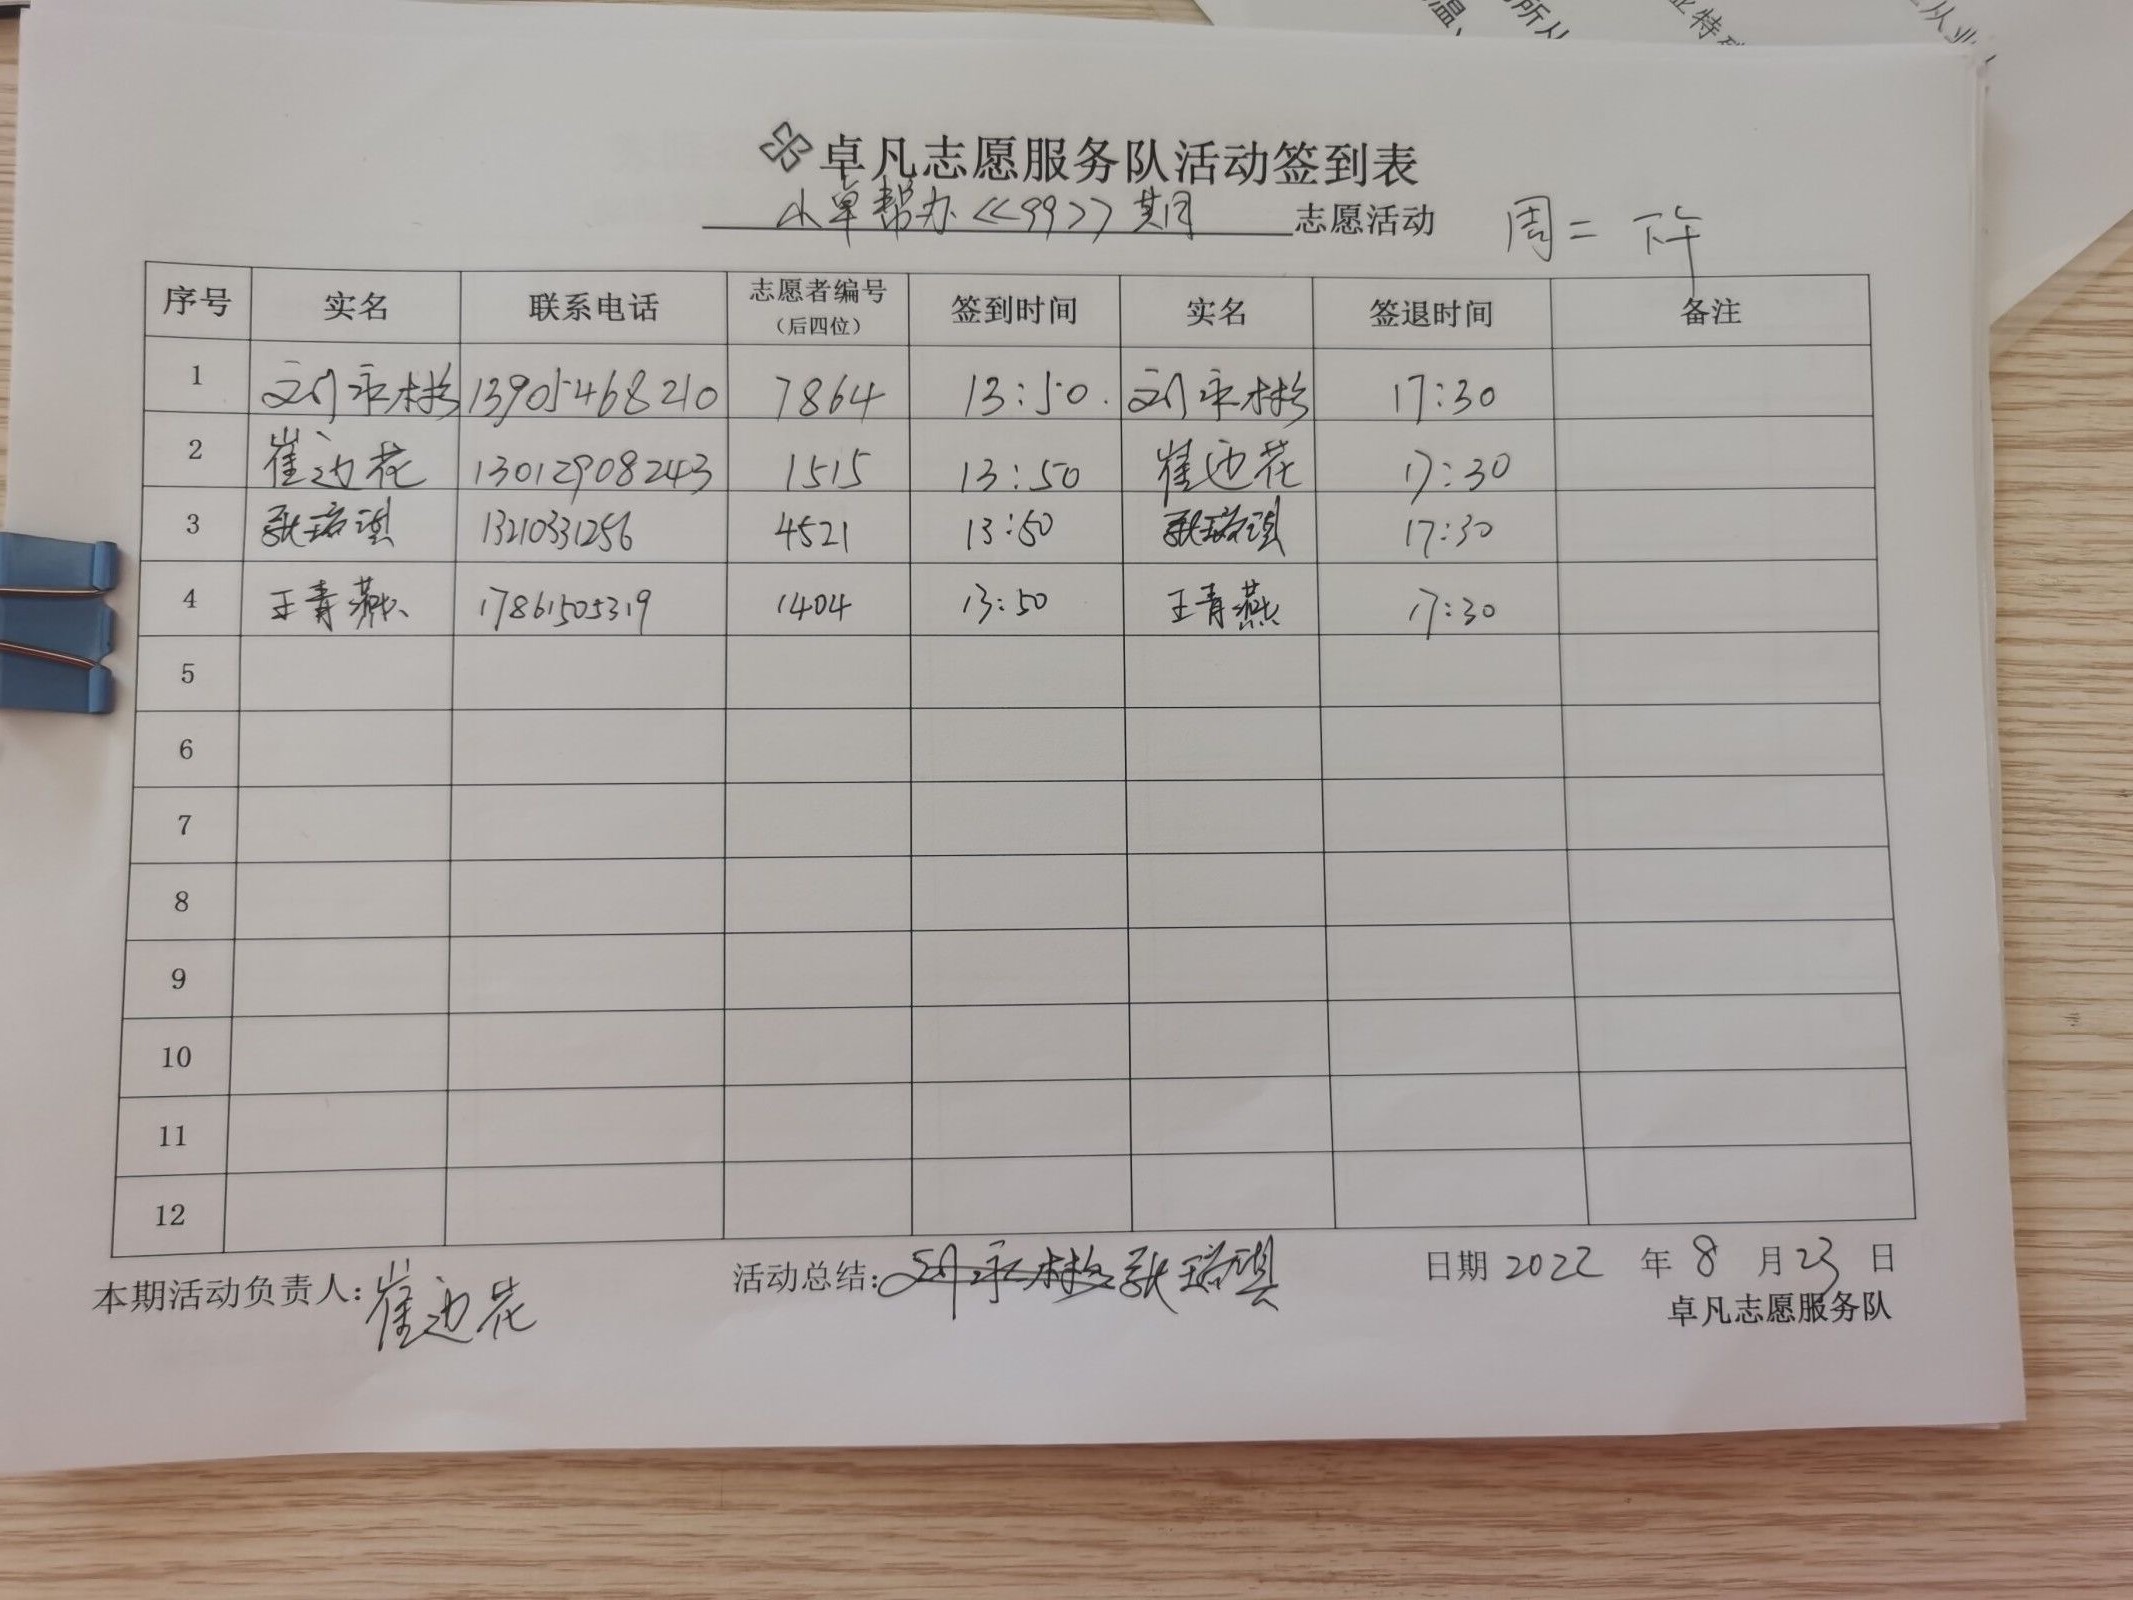 温、
所从
业特殊
从业
卓凡志愿服务队活动签到表
小卓帮办<<99>>期 志愿活动 周二 下午
序号 实名 联系电话 志愿者编号（后四位） 签到时间 实名 签退时间 备注
1 刘永林 13905468210 7864 13:50. 刘永林 17:30
2 崔边花 13012908243 1515 13:50 崔边花 17:30
3 耿瑞琪 13210331256 4521 13:50 耿瑞琪 17:30
4 王青燕 17861505319 1404 13:50 王青燕 17:30
5
6
7
8
9
10
11
12
本期活动负责人:崔边花 活动总结:刘永林 耿瑞琪 日期 2022 年 8 月 23 日
卓凡志愿服务队